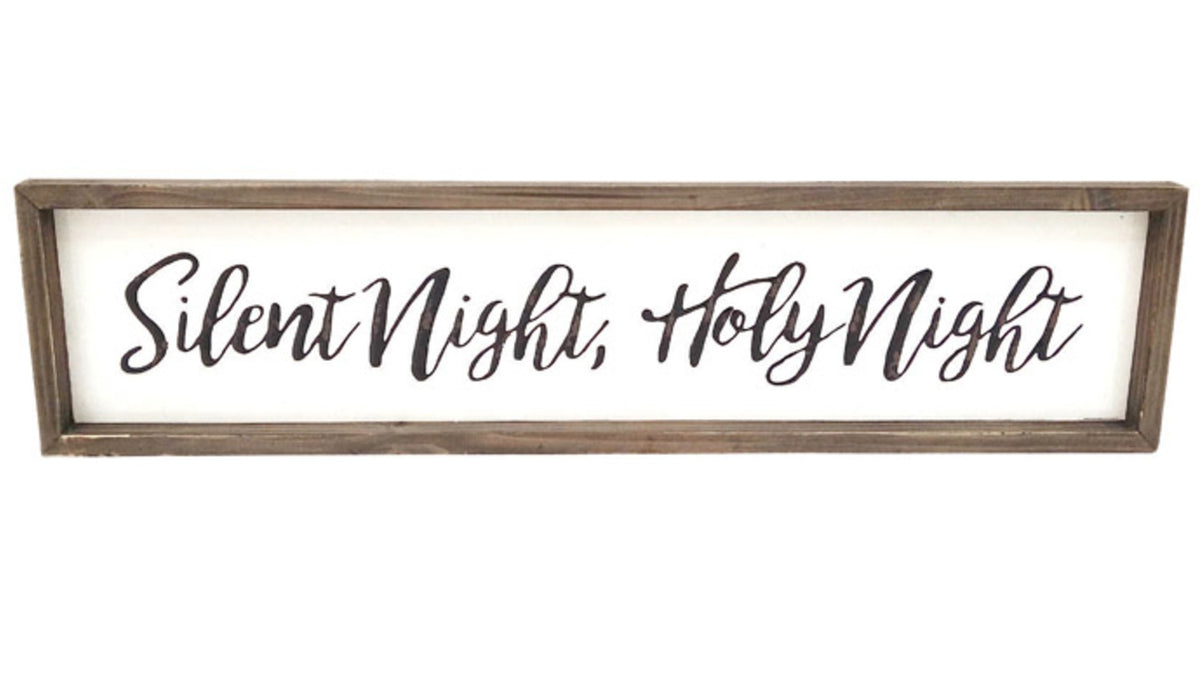 Silent Night, Holy Night